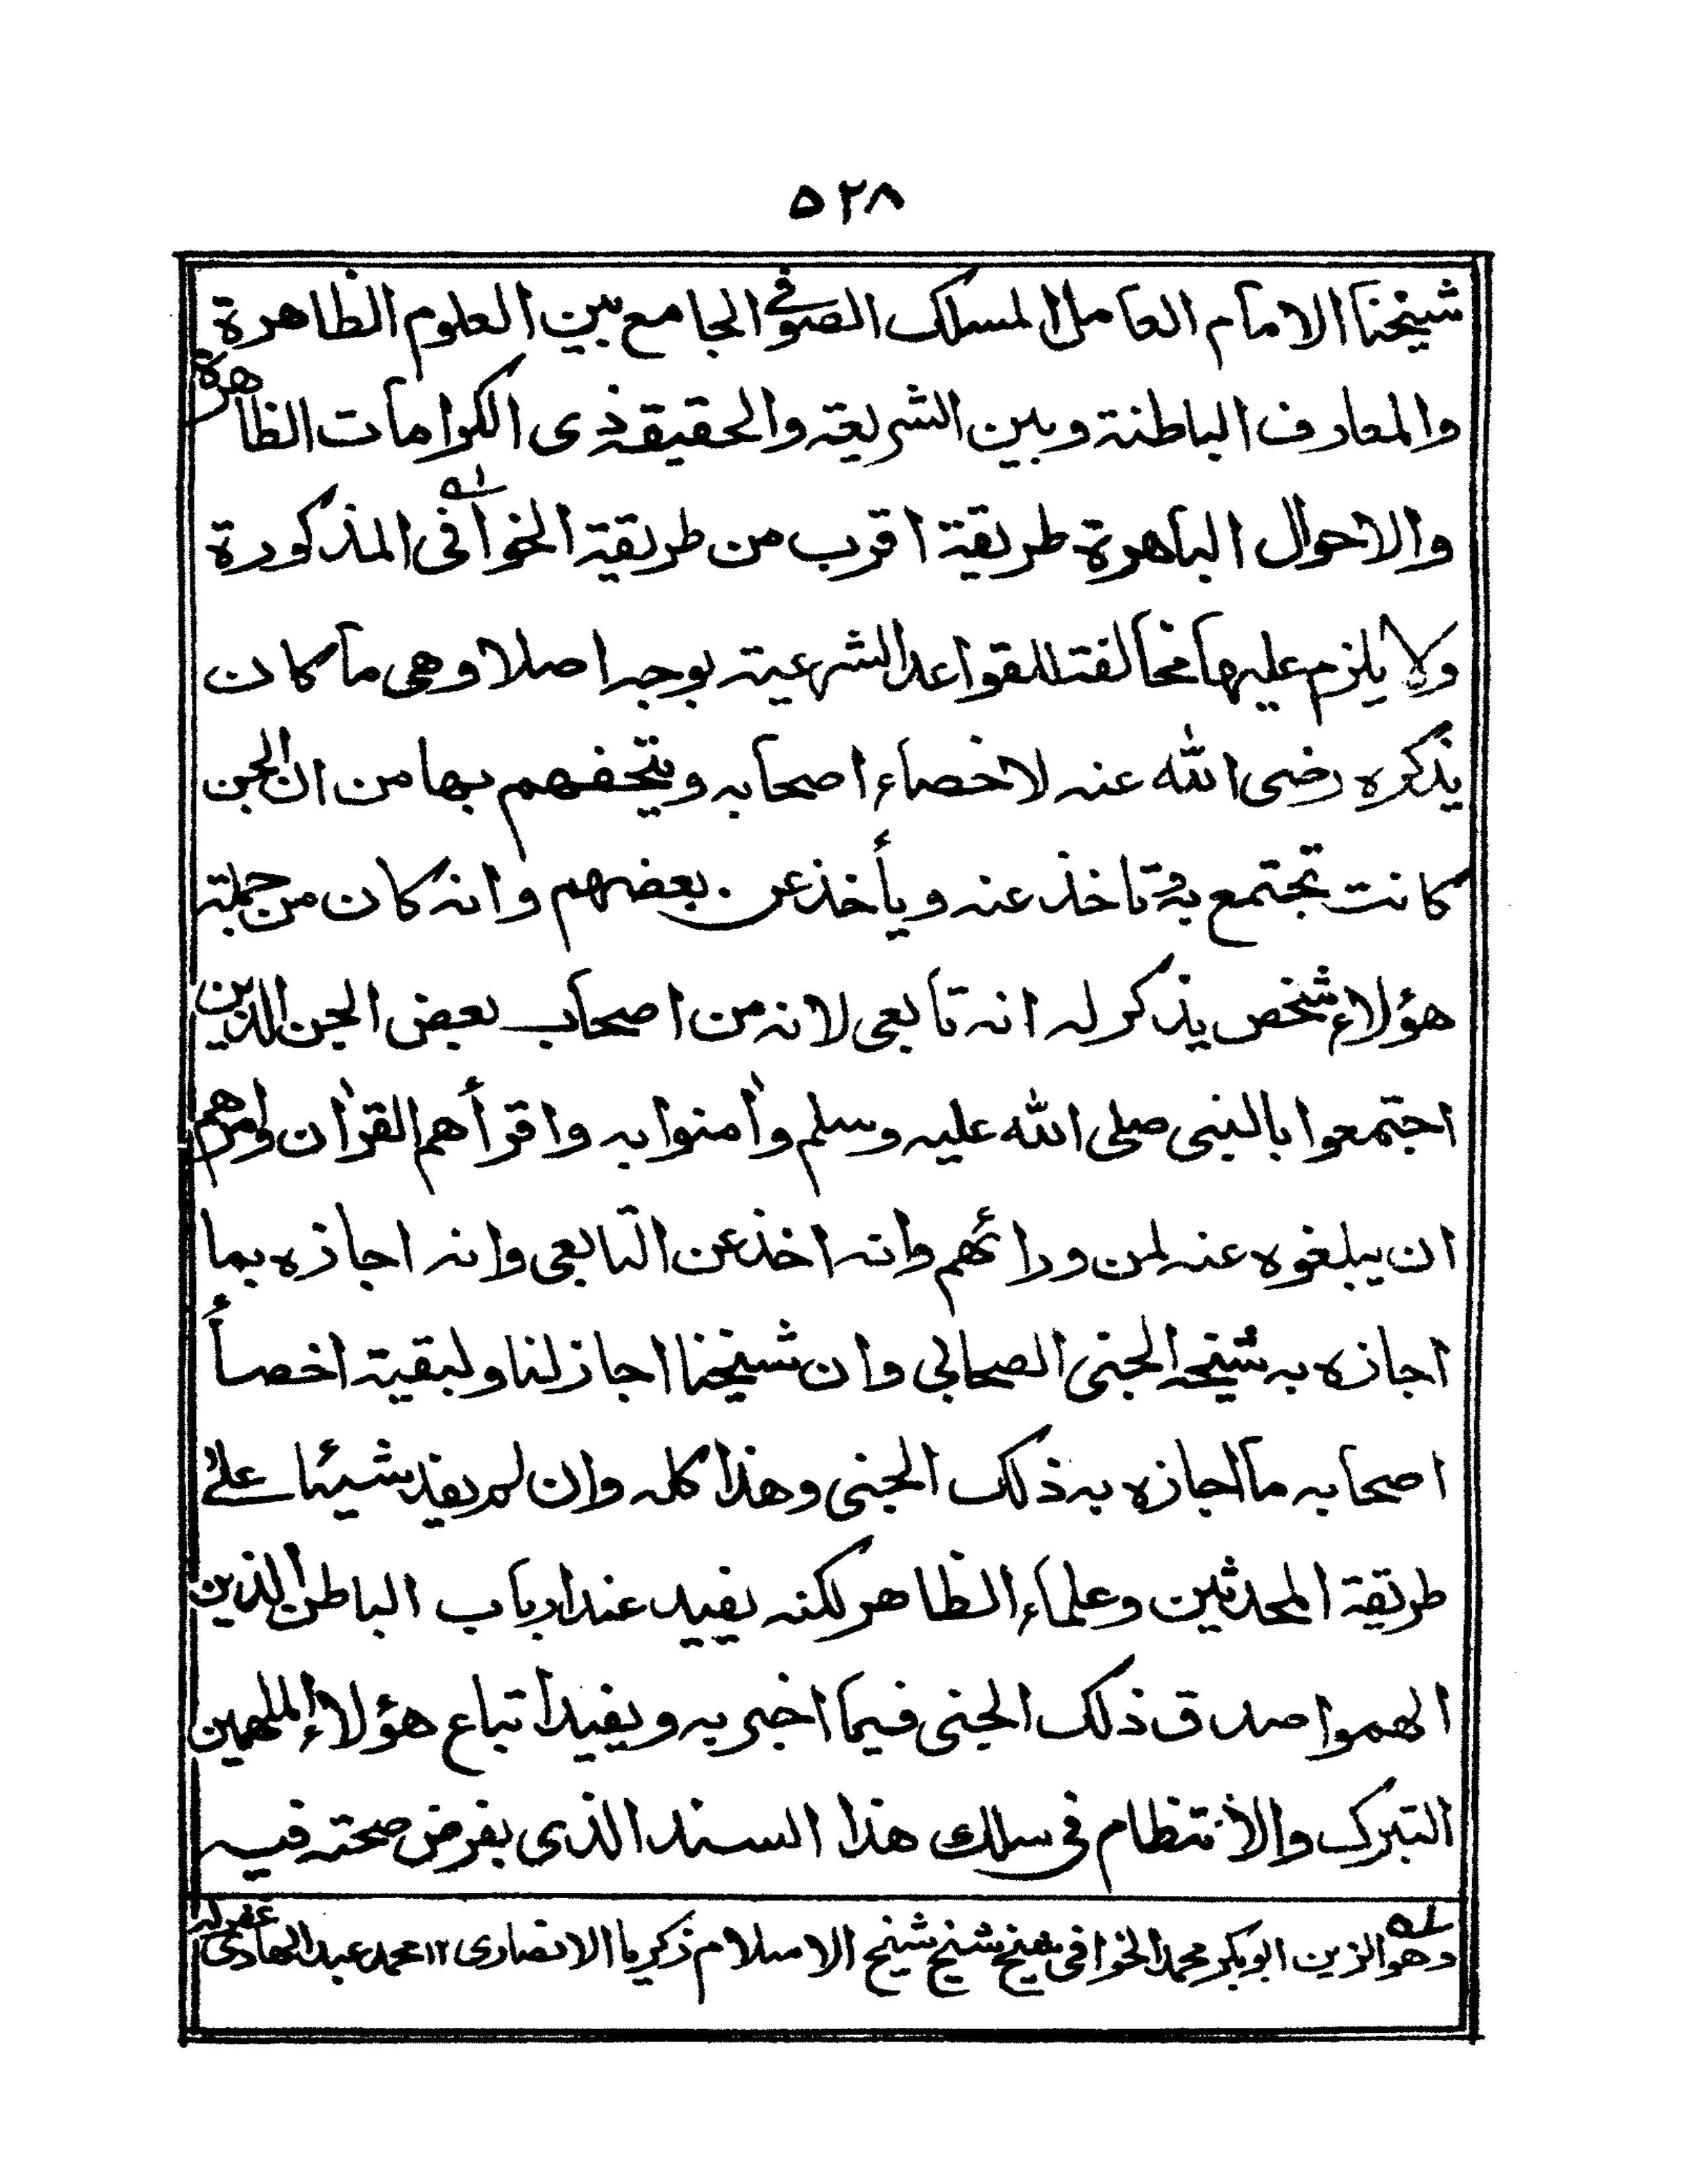 ٥٢٨
شيخنا الامام العامل المسلك الصوفى الجامع بين العلوم الظاهرة
والمعارف الباطنة وبين الشريعة والحقيقة ذى الكرامات الظاهرة
والاحوال الباهرة طريقة اقرب من طريقة الخوافى المذكورة
ولا يلزم عليها مخالفة للقواعد الشرعية بوجه اصلا وهى ما كان
يذكره رضى الله عنه لاخصاء اصحابه ويتحفهم بها من ان الجن
كانت تجتمع به وتاخذ عنه ويأخذ عن بعضهم وانه كان من جملة
هؤلاء شخص يذكر له انه تابعى لانه من اصحاب بعض الجن الذين
اجتمعوا بالنبى صلى الله عليه وسلم وأمنوا به واقرأهم القرأن وامرهم
ان يبلغوه عنه لمن ورائهم وانه اخذ عن التابعى وانه اجازه بما
اجازه به شيخه الجنى الصحابى وان شيخنا اجاز لنا ولبقية اخصأ
اصحابه ما اجازه به ذلك الجنى وهذا كله وان لم يفد شيئا على
طريقة المحدثين وعلماء الظاهر لكنه يفيد عند ارباب الباطن الذين
الهموا صدق ذلك الجنى فيما اخبر به ويفيد اتباع هؤلاء الملهمين
التبرك والانتظام فى سلك هذا السند الذى يفرض صحته فيه
له وهو الزين ابو بكر محمد الخوافى شيخ شيخ شيخ الاسلام زكريا الانصارى ١٢ محمد عبد الهادى غفر له